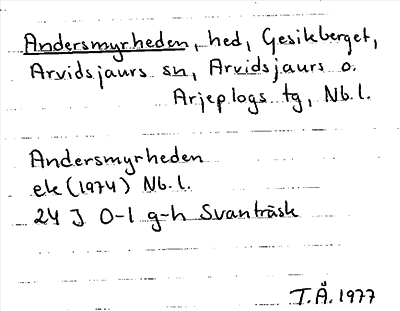 Andersmyrheden, hed, Gesikberget,
Arvidsjaurs sn, Arvidsjaurs o.
Arjeplogs tg, Nb. l.
Andersmyrheden
ek (1974) Nb. l.
24 J 0-1 g-h Svanträsk
T.Å. 1977